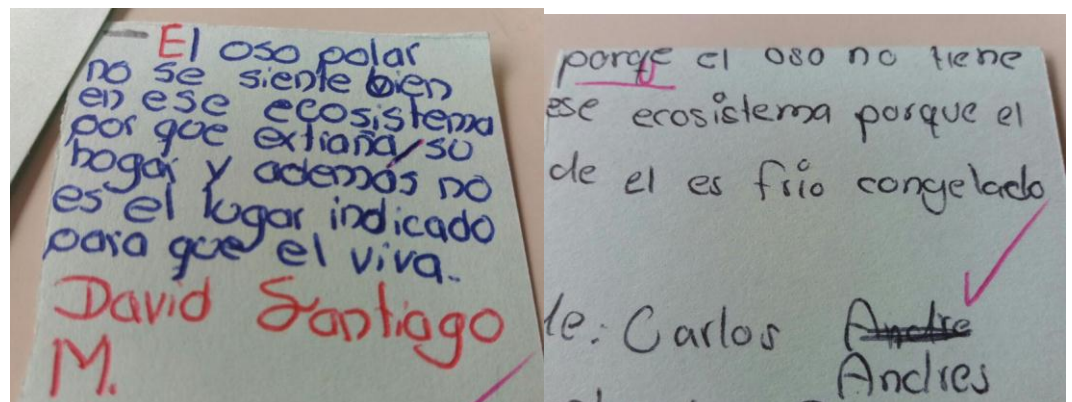 El oso polar
no se siente bien
en ese ecosistema
por que extraña su
hogar y además no
es el lugar indicado
para que el viva.
David Santiago
M.
porqe el oso no tiene
ese ecrosistema porque el
de el es frio congelado
de: Carlos
Andres